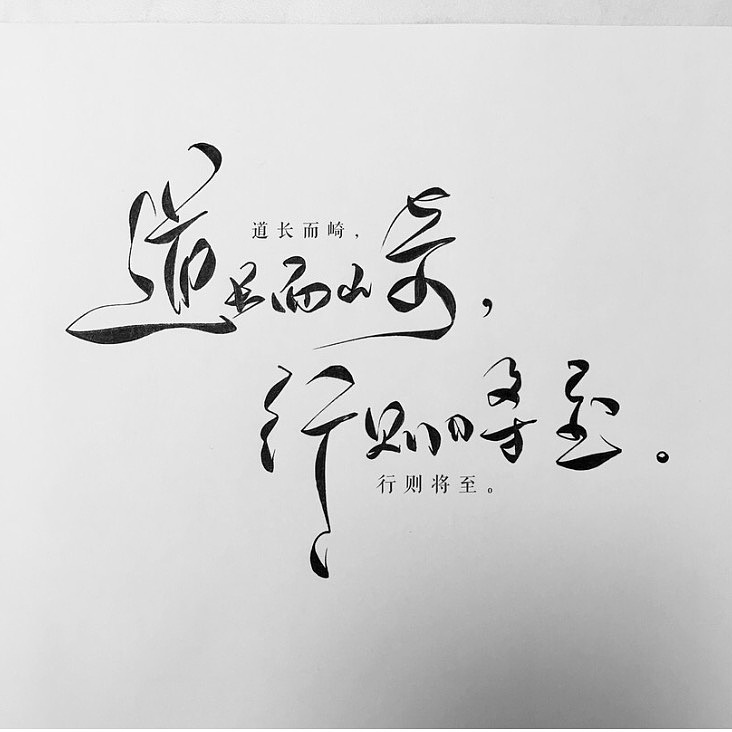 道长而崎，
道长而崎，
行则将至。
行则将至。